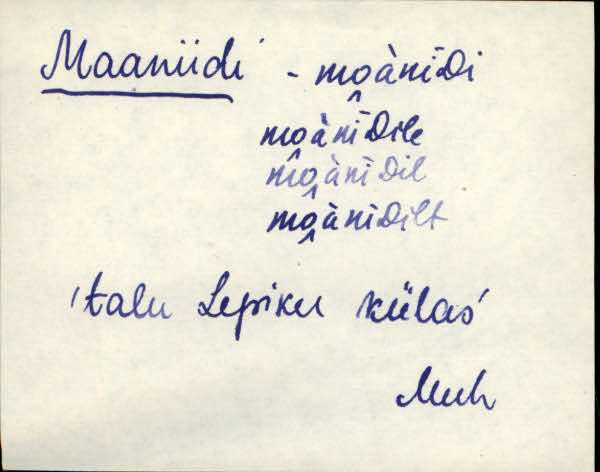 Maaniidi - mo̭ànīDi
mo̭ànīDile
mo̭ànīDil
mo̭ànīDilt
'talu Lepiku külas'
Muh